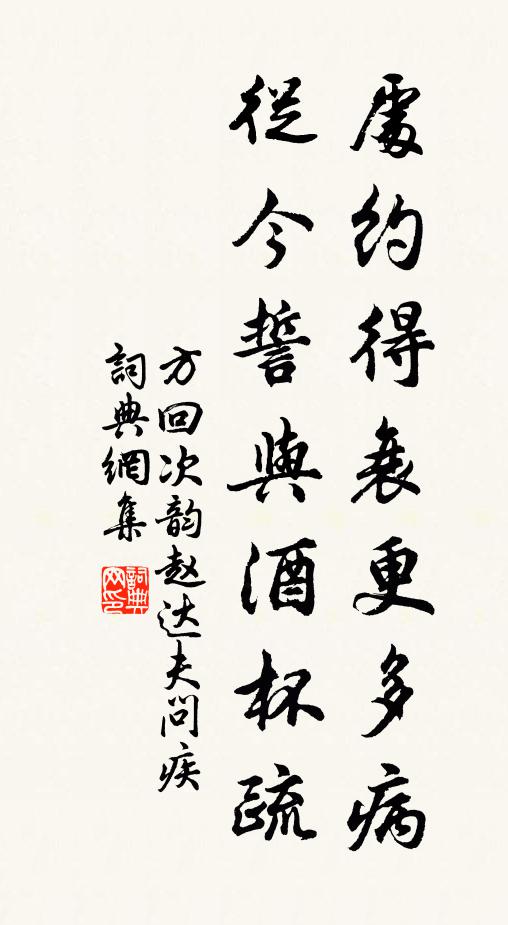 處約得衰更多病
從今誓與酒杯疏
方回次韵赵达夫問疾
詞典網集
詞典網印